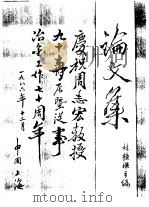 論文集
林栋樑主编
慶祝周志宏教授
九十寿辰暨從事
冶金工作七十周年
一九八六年十二月
中国上海